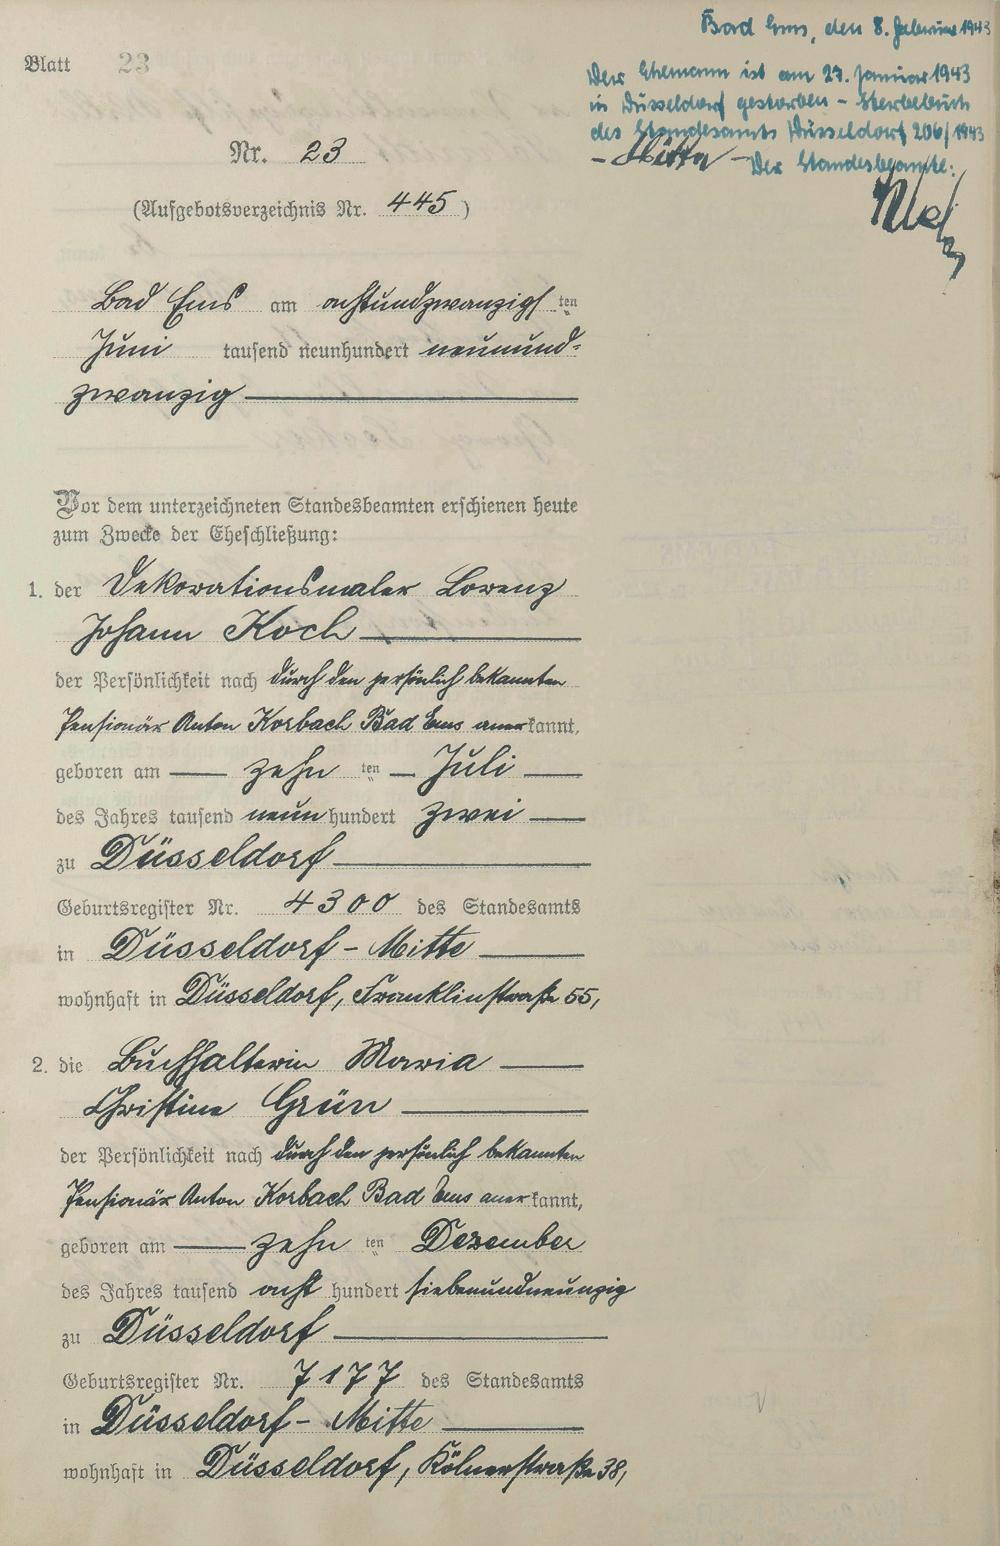 Bad Ems, den 8. Februar 1943
Blatt 23
Der Ehemann ist am 27. Januar 1943
in Düsseldorf gestorben - Sterbebuch
des Standesamts Düsseldorf 206/1943
- Mitte - Der Standesbeamte:
Nr. 23
(Aufgebotsverzeichnis Nr. 445)
Bad Ems am achtundzwanzigsten
Juni tausend neunhundert neunund-
zwanzig
Vor dem unterzeichneten Standesbeamten erschienen heute
zum Zwecke der Eheschließung:
1. der Dekorationsmaler Lorenz
Johann Koch
der Persönlichkeit nach durch den persönlich bekannten
Pensionär Anton Korbach Bad Ems anerkannt,
geboren am zehn ten Juli
des Jahres tausend neun hundert zwei
zu Düsseldorf
Geburtsregister Nr. 4300 des Standesamts
in Düsseldorf - Mitte
wohnhaft in Düsseldorf, Franklinstraße 55,
2. die Buchhalterin Maria
Christine Grün
der Persönlichkeit nach durch den persönlich bekannten
Pensionär Anton Korbach Bad Ems anerkannt,
geboren am zehn ten Dezember
des Jahres tausend acht hundert siebenundneunzig
zu Düsseldorf
Geburtsregister Nr. 7177 des Standesamts
in Düsseldorf - Mitte
wohnhaft in Düsseldorf, Kölnerstraße 38,